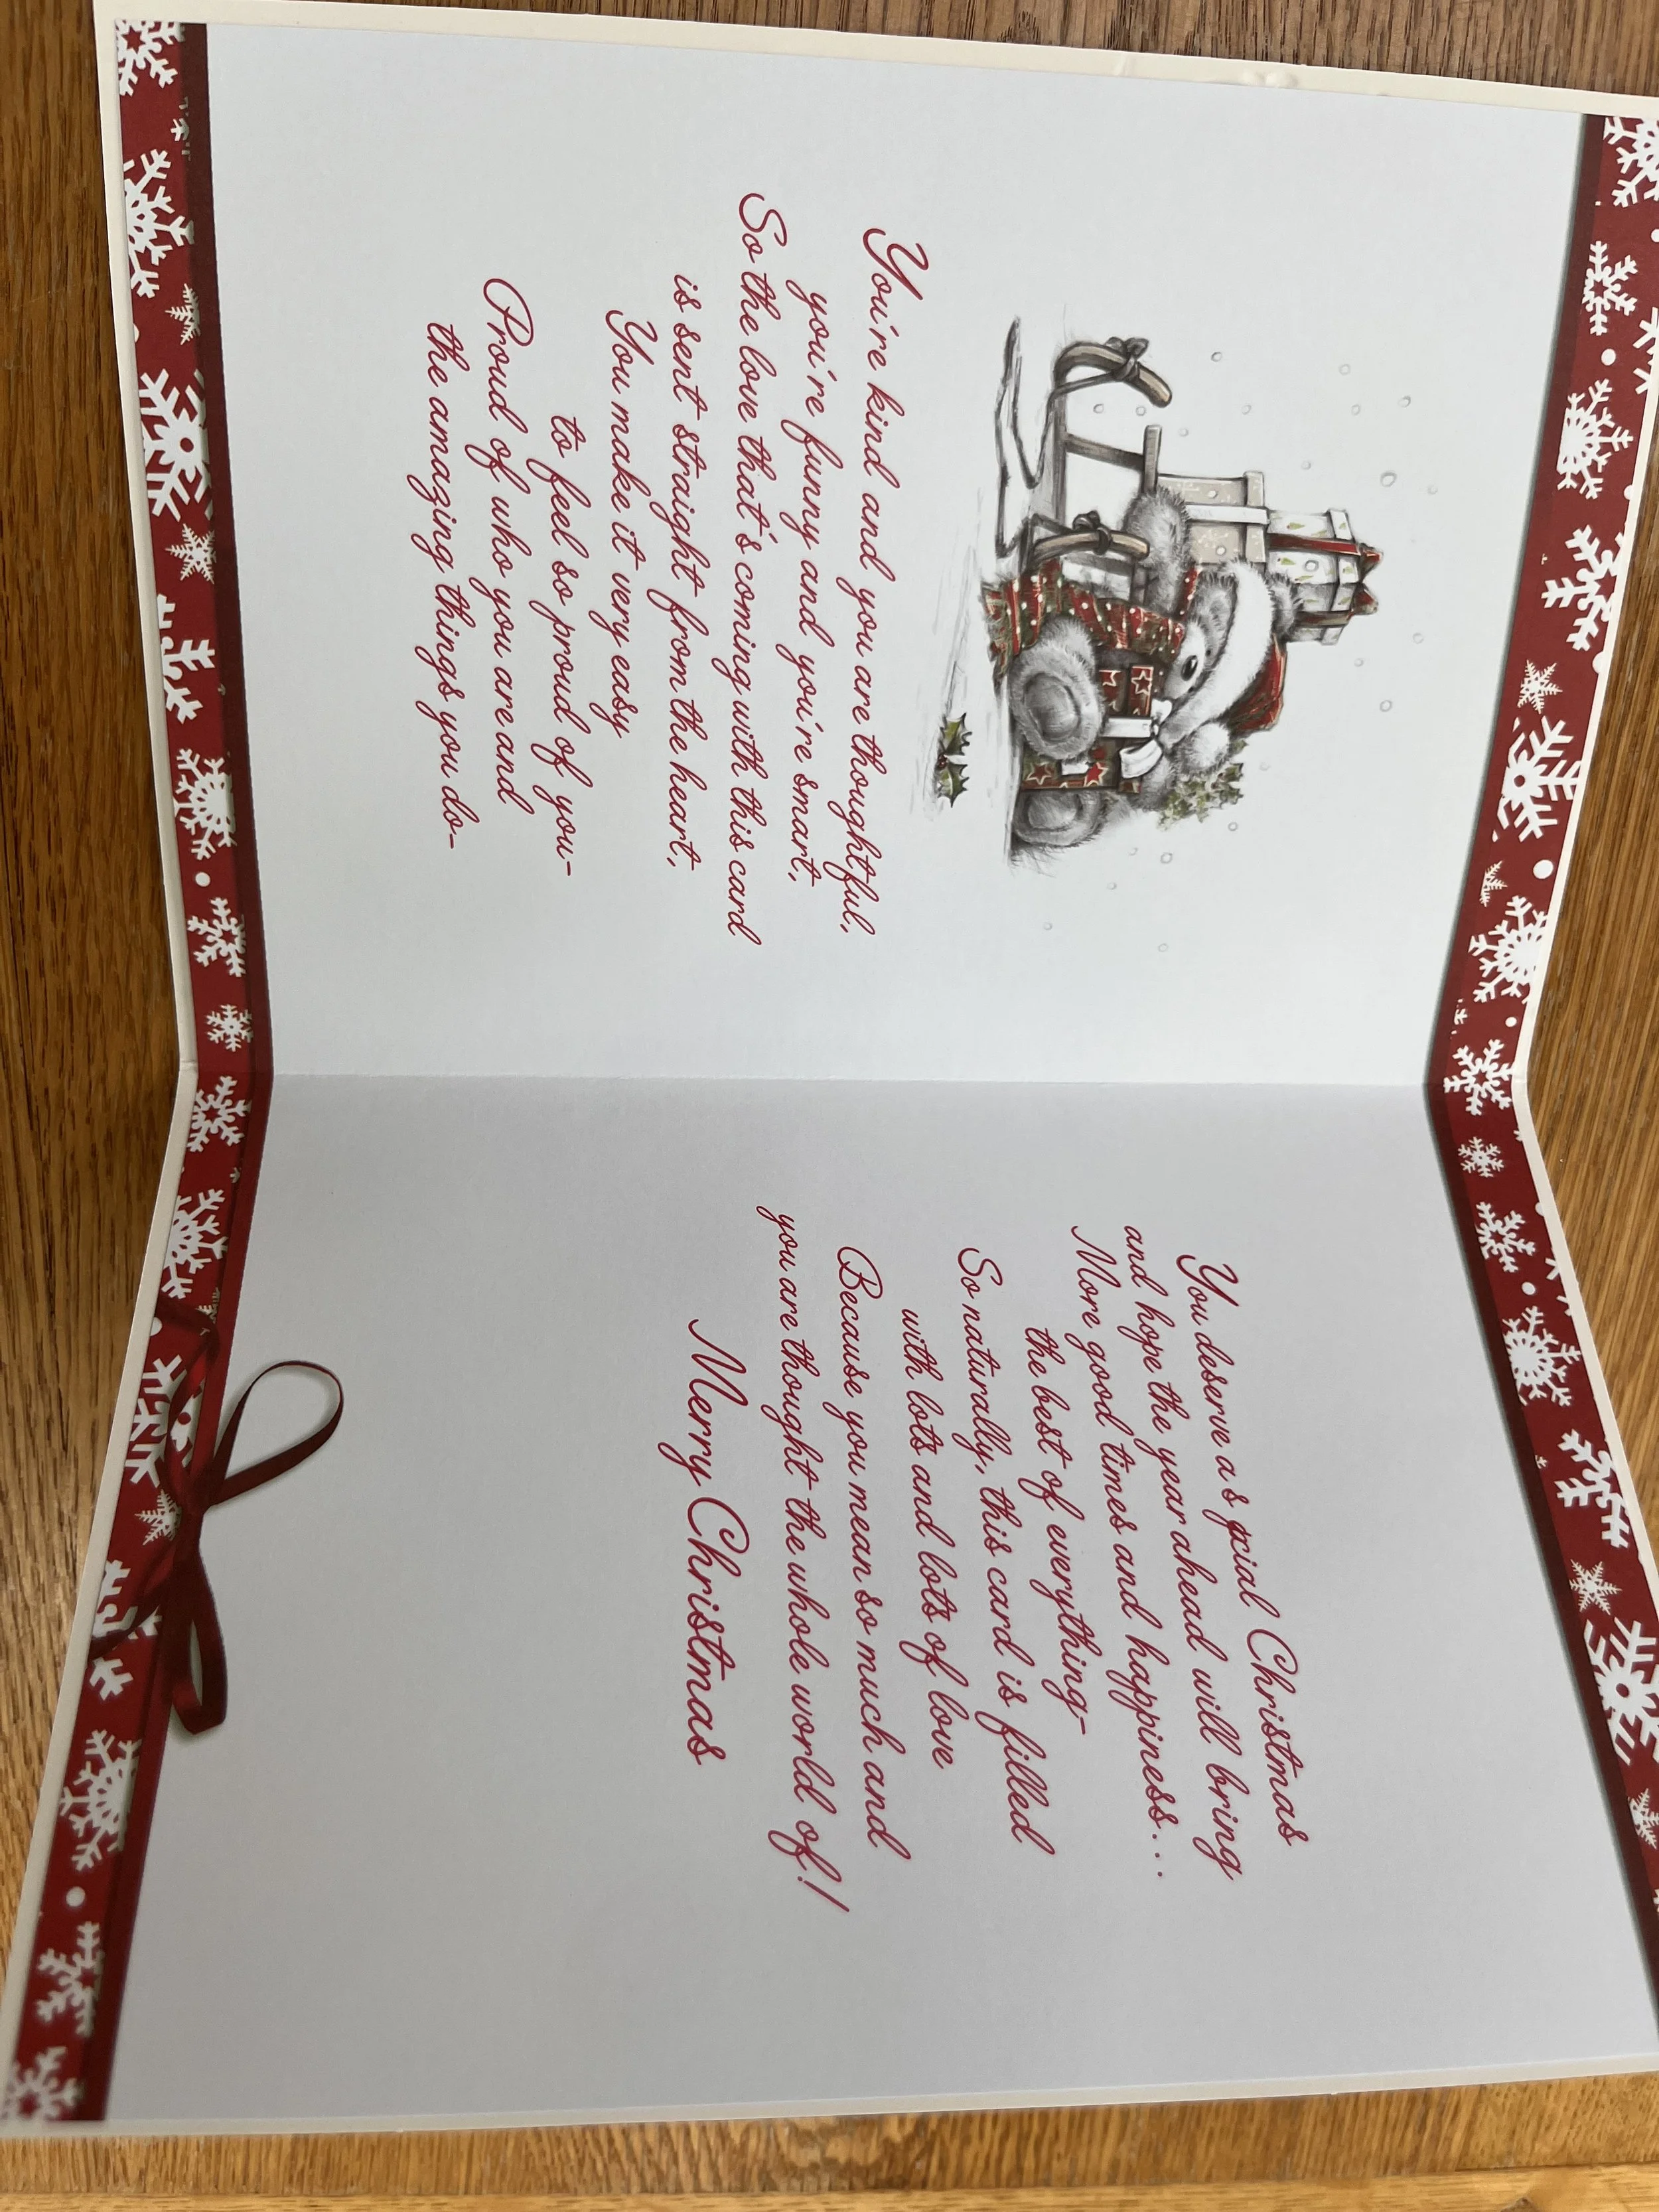 You're kind and you are thoughtful,
you're funny and you're smart,
So the love that's coming with this card
is sent straight from the heart,
You make it very easy
to feel so proud of you-
Proud of who you are and
the amazing things you do-
You deserve a special Christmas
and hope the year ahead will bring
More good times and happiness...
the best of everything-
So naturally, this card is filled
with lots and lots of love
Because you mean so much and
you are thought the whole world of!
Merry Christmas